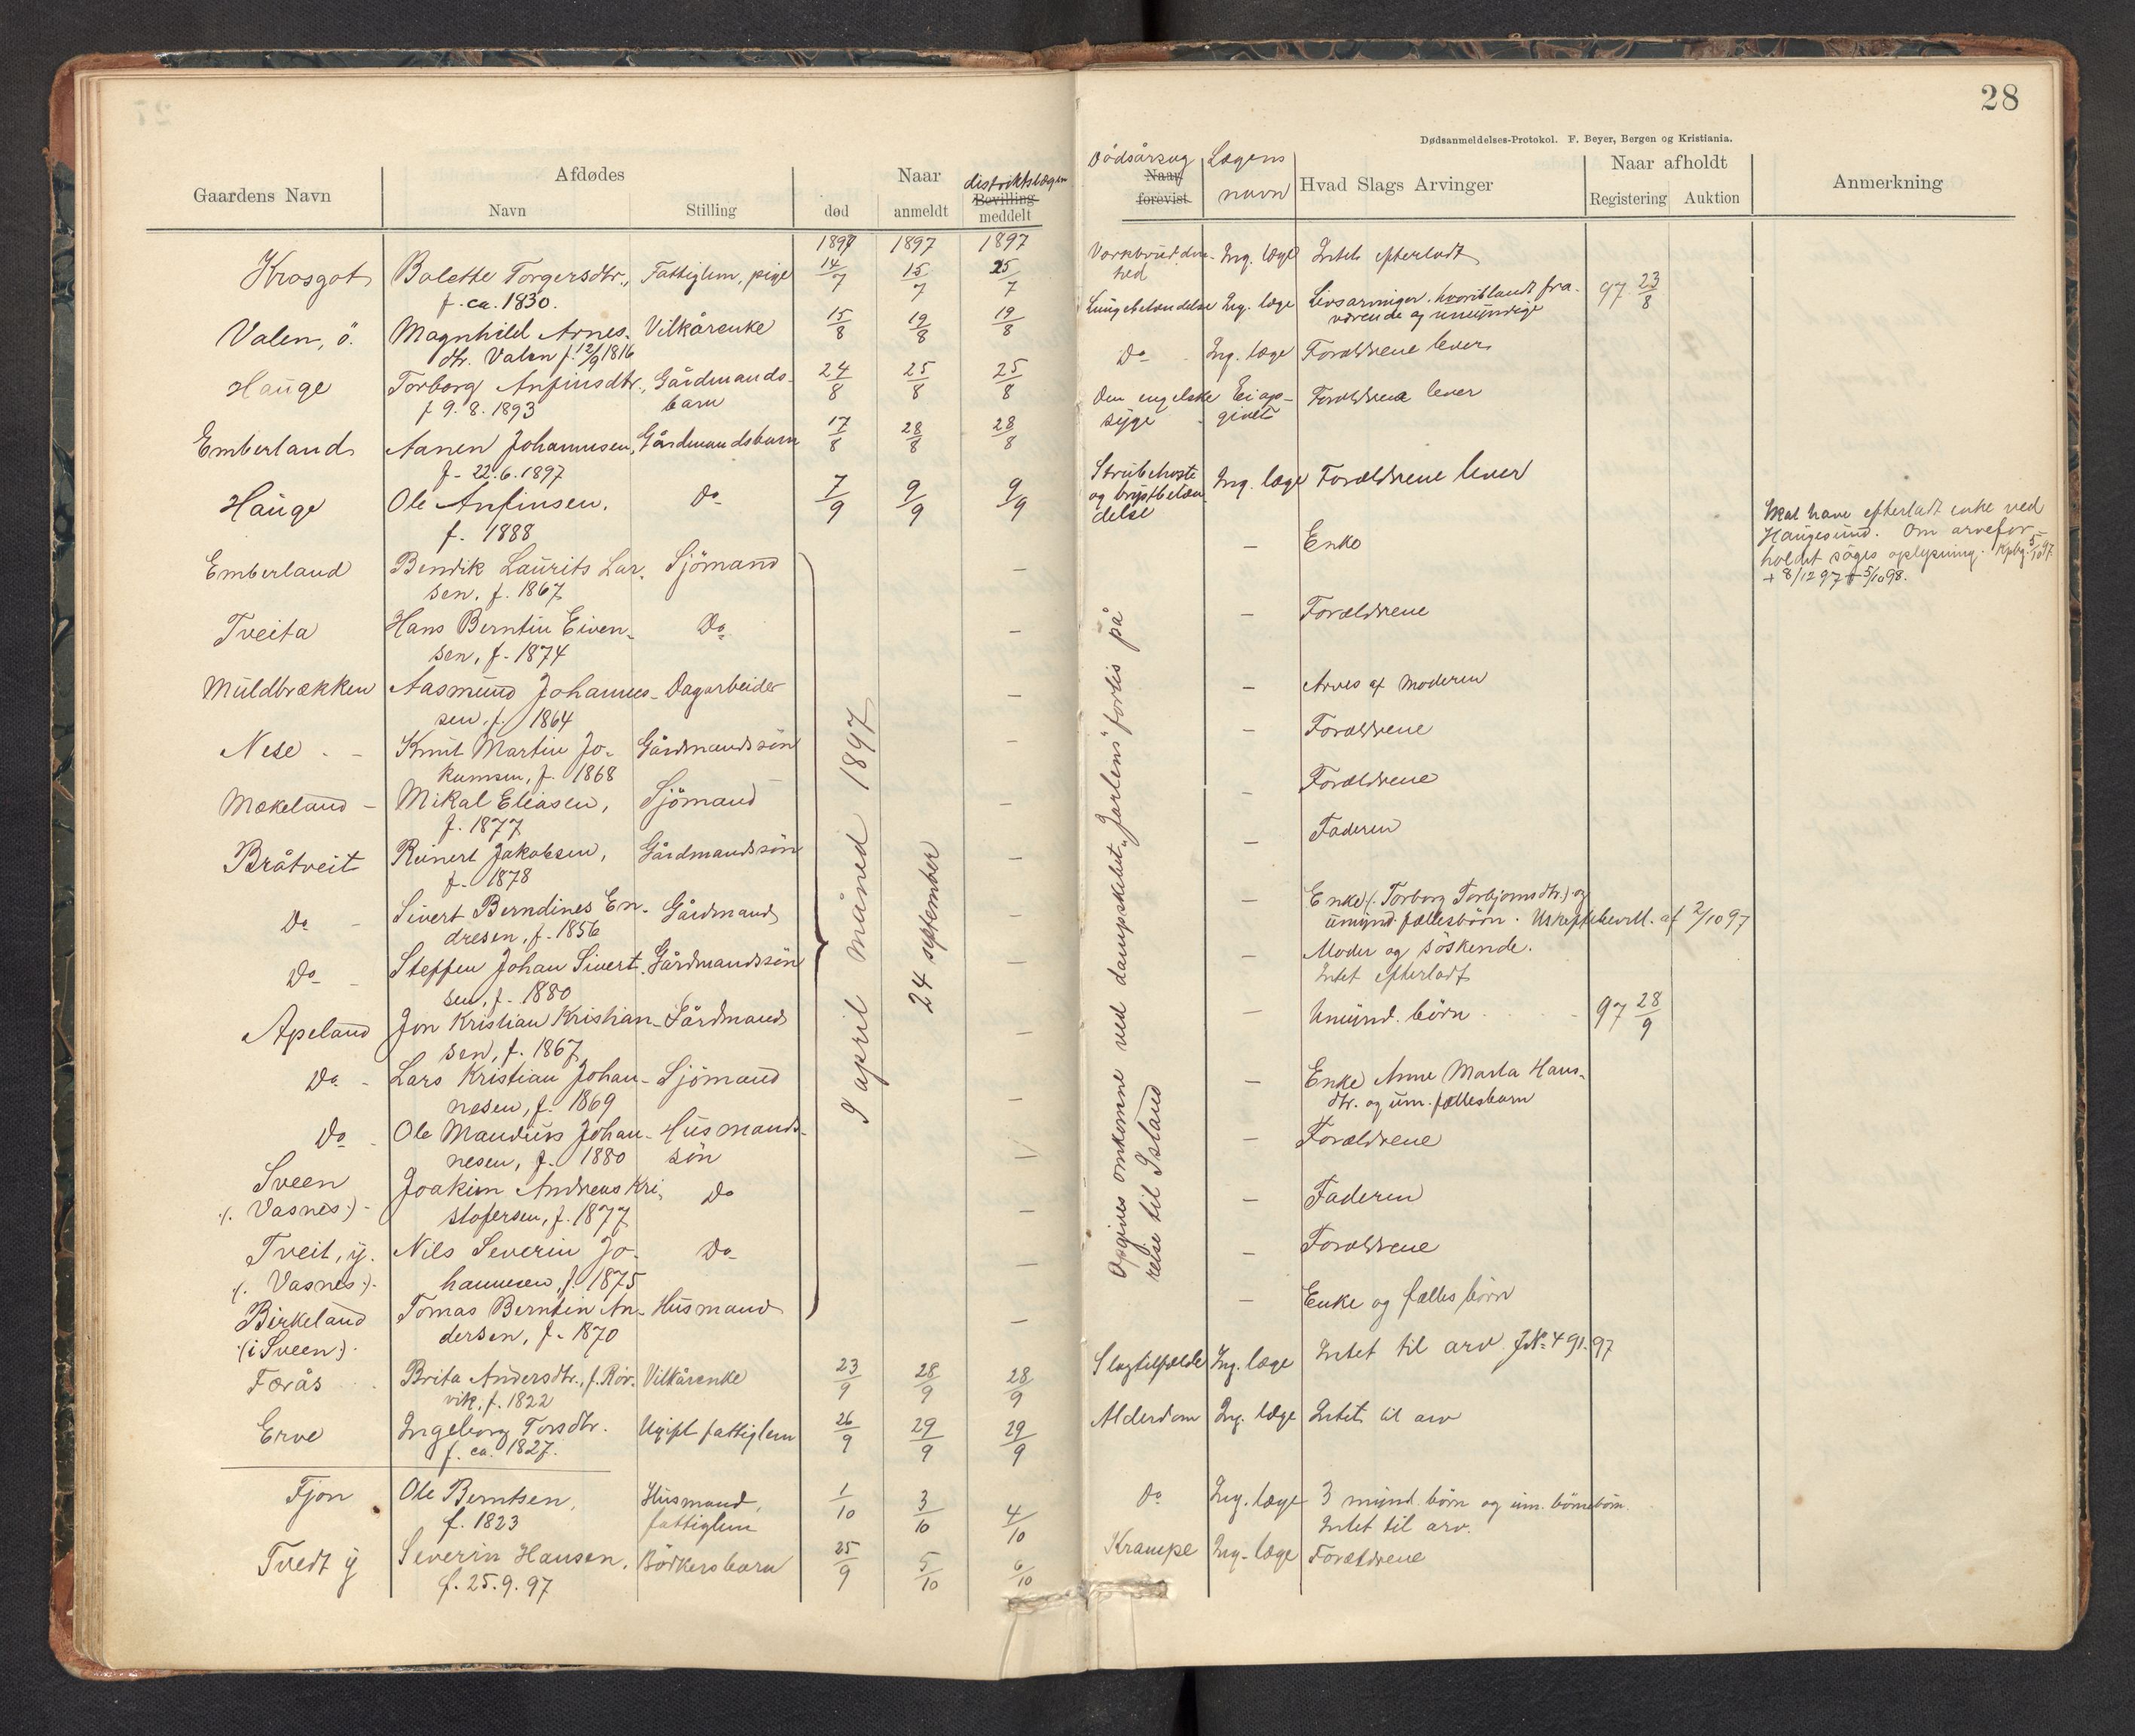 28
Dødsanmeldelses-Protokol. F. Beyer, Bergen og Kristiania.
Gaardens Navn
Afdødes
Navn
Stilling
Naar
død
anmeldt
distriktslægen
Bevilling
meddelt
Dödsårsag
Naar
forevist
Lægens
navn
Hvad Slags Arvinger
Naar afholdt
Registering
Auktion
Anmerkning
1897 1897 1897
Krosgot Bolette Torgersdtr., Fattiglem, pige 14/7 15/7 25/7 Ing. læge Intet efterladt
f. ca. 1830.
Valen, ö. Magnhild Arnes- Vilkårenke 15/8 19/8 19/8 Lungebetændelse Ing. læge Livsarvinger, hvoriblandt fra- 97 23/8
dtr. Valen f. 12/9 1816 værende og umyndige
Hauge Torborg Anfinsdtr., Gårdmands- 24/8 25/8 25/8 Do Ing. læge Forældrene lever
f 9.8.1893 barn
Emberland Aanen Johannesen, Gårdmandsbarn 17/8 28/8 28/8 Den engelske Ei op- Forældrene lever
f. 22.6.1897 syge givet
Hauge Ole Anfinsen, Do 7/9 9/9 9/9 Strubehoste Ing. læge Forældrene lever
f. 1888 og brystbetæn-
delse
Emberland Bendik Laurits Lar- Sjömand — — Enke
sen, f. 1867
Skal have efterladt enke ved
Haugesund. Om arvefor-
holdet søges oplysning. Kpbg. 5/10 97.
+ 8/12 97 + 5/10 98.
Tveita Hans Berntin Eiven- Do — — Forældrene
sen, f. 1874
Muldbrækken Aasmund Johannes- Dagarbeider — — Arves af Moderen
sen, f. 1864
Nese Knut Martin Jo- Gårdmandssön — — Forældrene
kumsen, f. 1868
Mækeland Mikal Eliasen, Sjömand — — Forældrene
f. 1877
Bråtveit Reinert Jakobsen, Gårdmandssön — — Faderen
f. 1878
Do Sivert Berndines En- Gårdmand — — Enke (: Torborg Torbjornsdtr.) og
dresen, f. 1856 umynd. fællesbörn. Uskiftebevill. af 2/10 97
Do Steffen Johan Sivert- Gårdmandssön — — Moder og söskende.
sen, f. 1880 Intet efterladt
Apeland Jon Kristian Kristian- Gårdmand — — Umynd. börn 97 28/9
sen, f. 1867
Do Lars Kristian Johan- Sjömand — — Enke Anne Marta Hans-
nesen, f. 1869 dtr. og um. fællesbarn
Do Ole Mandius Johan- Husmands- — — Forældrene
nesen, f. 1880 sön
Sveen Joakim Andreas Kri- Do — — Faderen
(: Vasnes:) stofersen, f. 1877
Tveit, y. Nils Severin Jo- Do — — Forældrene
(: Vasnes:) hannesen, f. 1875
Birkeland Tomas Berntin An- Husmand — — Enke og fælles börn
(i Sveen:) dersen, f. 1870
I april måned 1897
24 september
Opgives omkomne ved dampskibet „Jarlens" forlis på
reise til Island
Færås Brita Andersdtr., f. Röv- Vilkårenke 23/9 28/9 28/9 Slagtilfælde Ing. læge Intet til arv JN. 491. 97
vik, f. 1822
Erve Ingeborg Torsdtr. Ugift fattiglem 26/9 29/9 29/9 Alderdom Ing. læge Intet til arv
f. ca. 1827.
Fjon Ole Berntsen, Husmand, 1/10 3/10 4/10 Do Ing. læge 3 mynd. börn og um. börnebörn.
f. 1823 fattiglem Intet til arv.
Tvedt y Severin Hansen, Bödkersbarn 25/9 5/10 6/10 Krampe Ing. læge Forældrene
f. 25.9.97